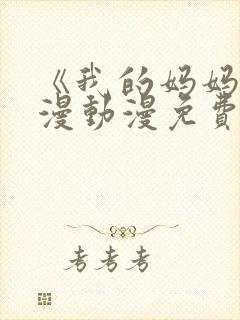 《我的妈妈
漫動漫免費
考考考